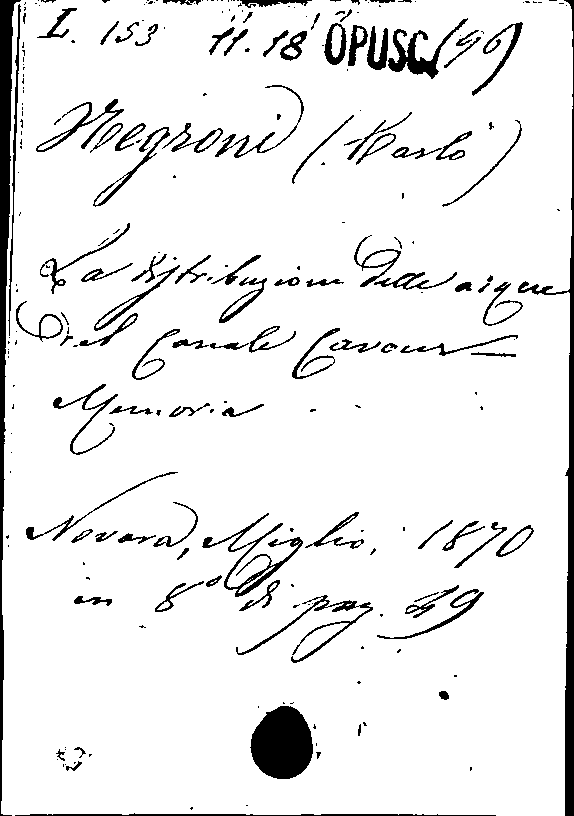 I. 153 11.18 OPUSC (96)
Negroni (Carlo)
La distribuzione delle acque
del Canale Cavour –
Memoria
Novara, Miglio, 1870
in 8° di pag. 49